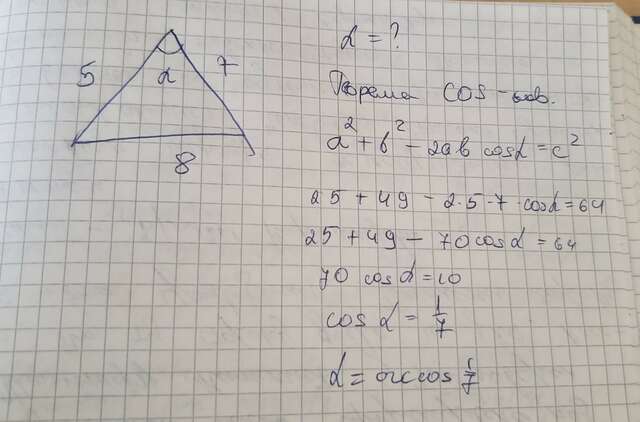 5 α 7
8
α = ?
Теорема cos-ов.
a² + b² - 2ab cosα = c²
25 + 49 - 2·5·7·cosα = 64
25 + 49 - 70cosα = 64
70 cosα = 10
cos α = 1/7
α = arccos 1/7